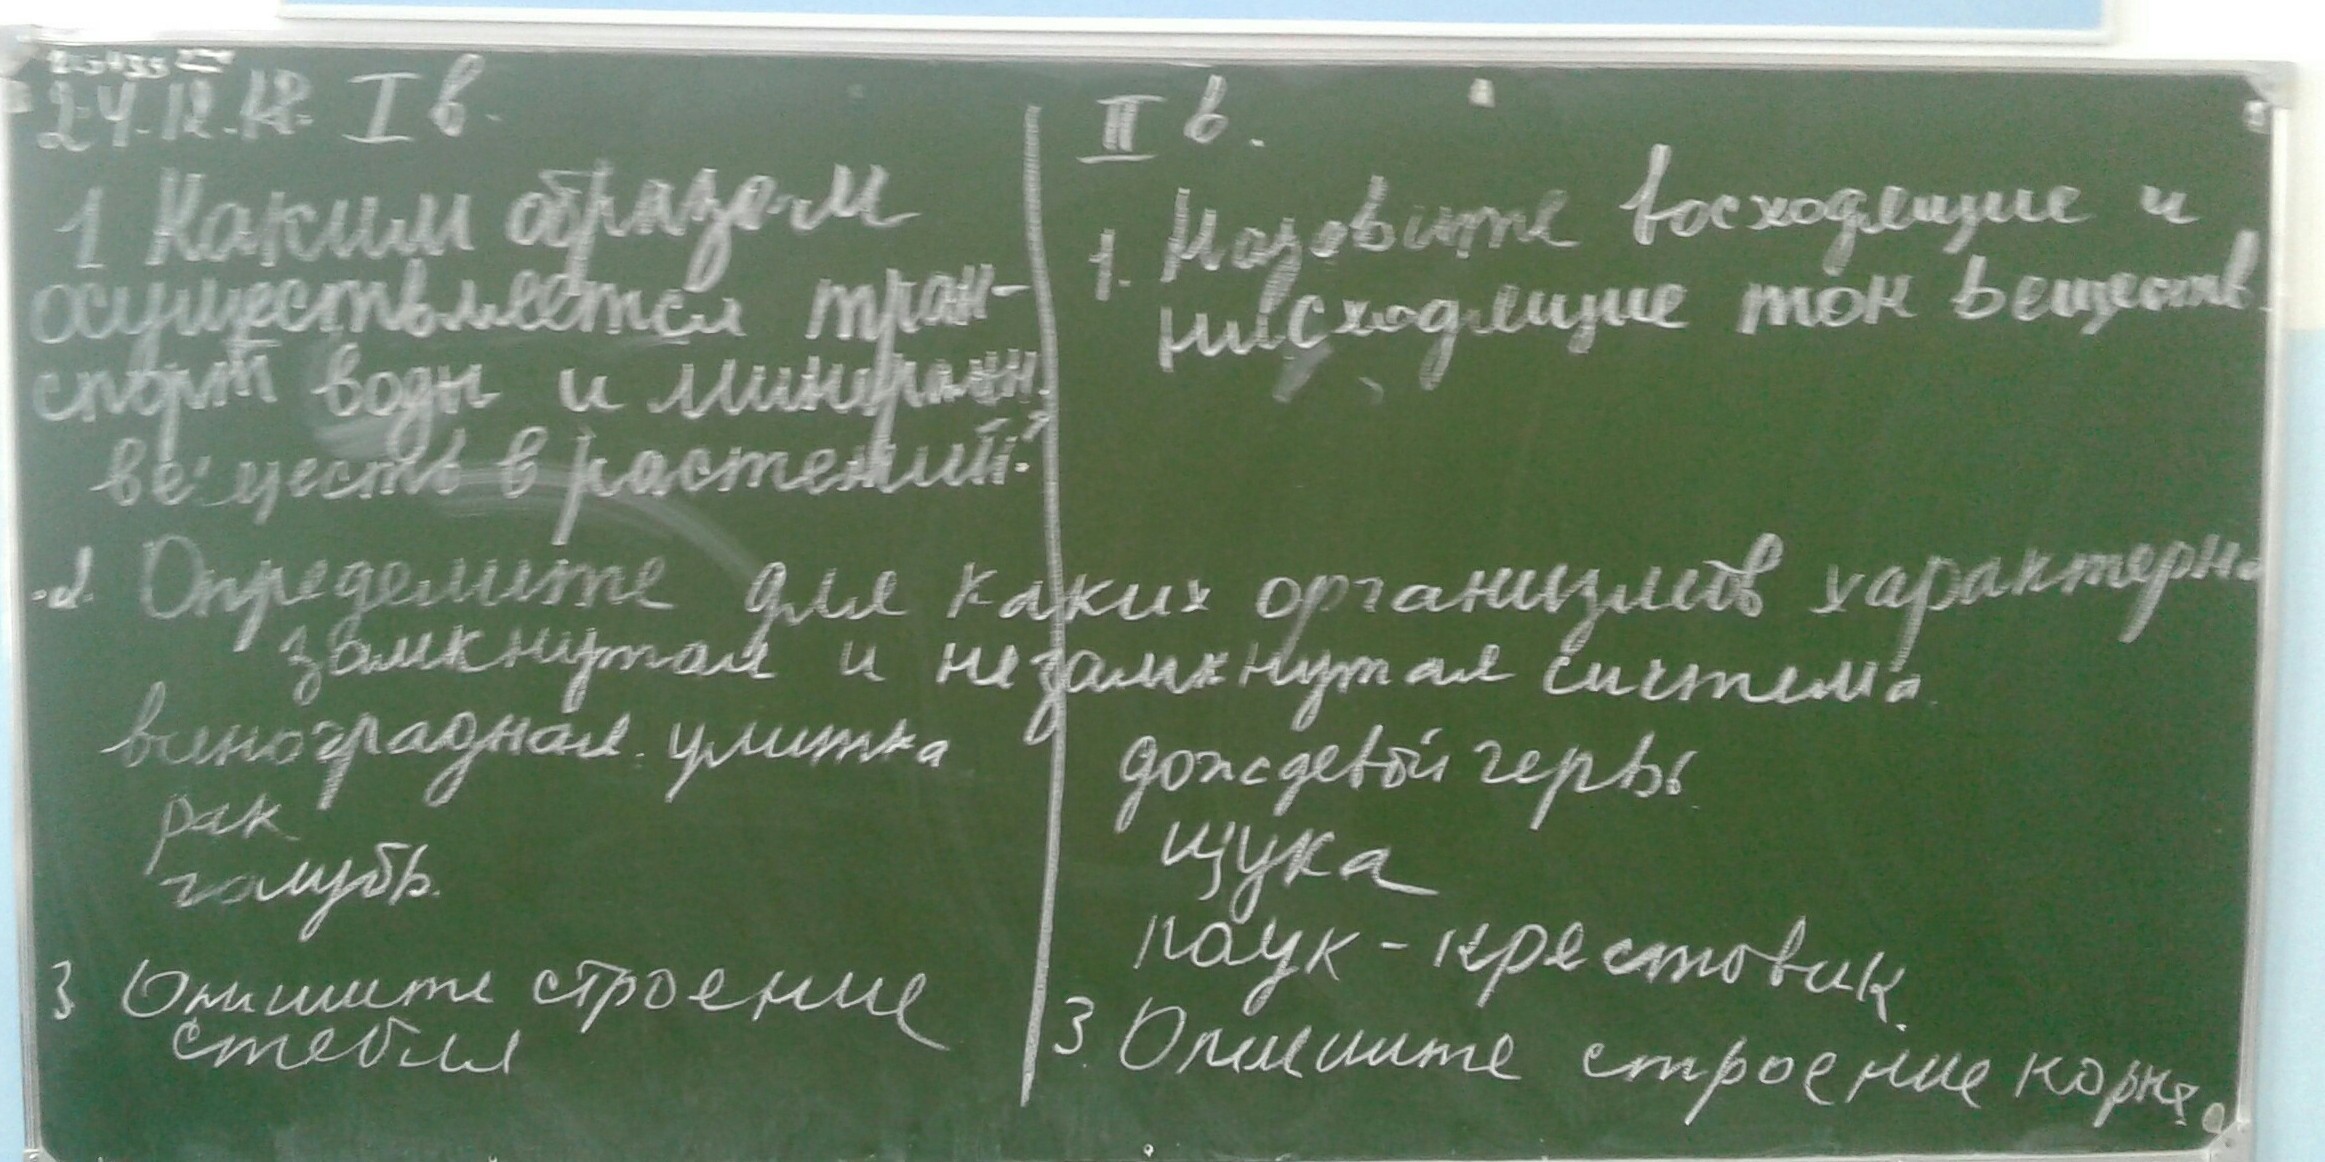 24.12.12. I в.
1 Каким образом
осуществляется тран-
спорт воды и минеральн.
веществ в растений?
II в.
1. Назовите восходящие и
нисходящие ток веществ.
2. Определите для каких организмов характерна
замкнутая и незамкнутая система
виноградная улитка
рак
голубь.
дождевой червь
щука
паук-крестовик.
3 Опишите строение
стебля
3. Опишите строение корня.